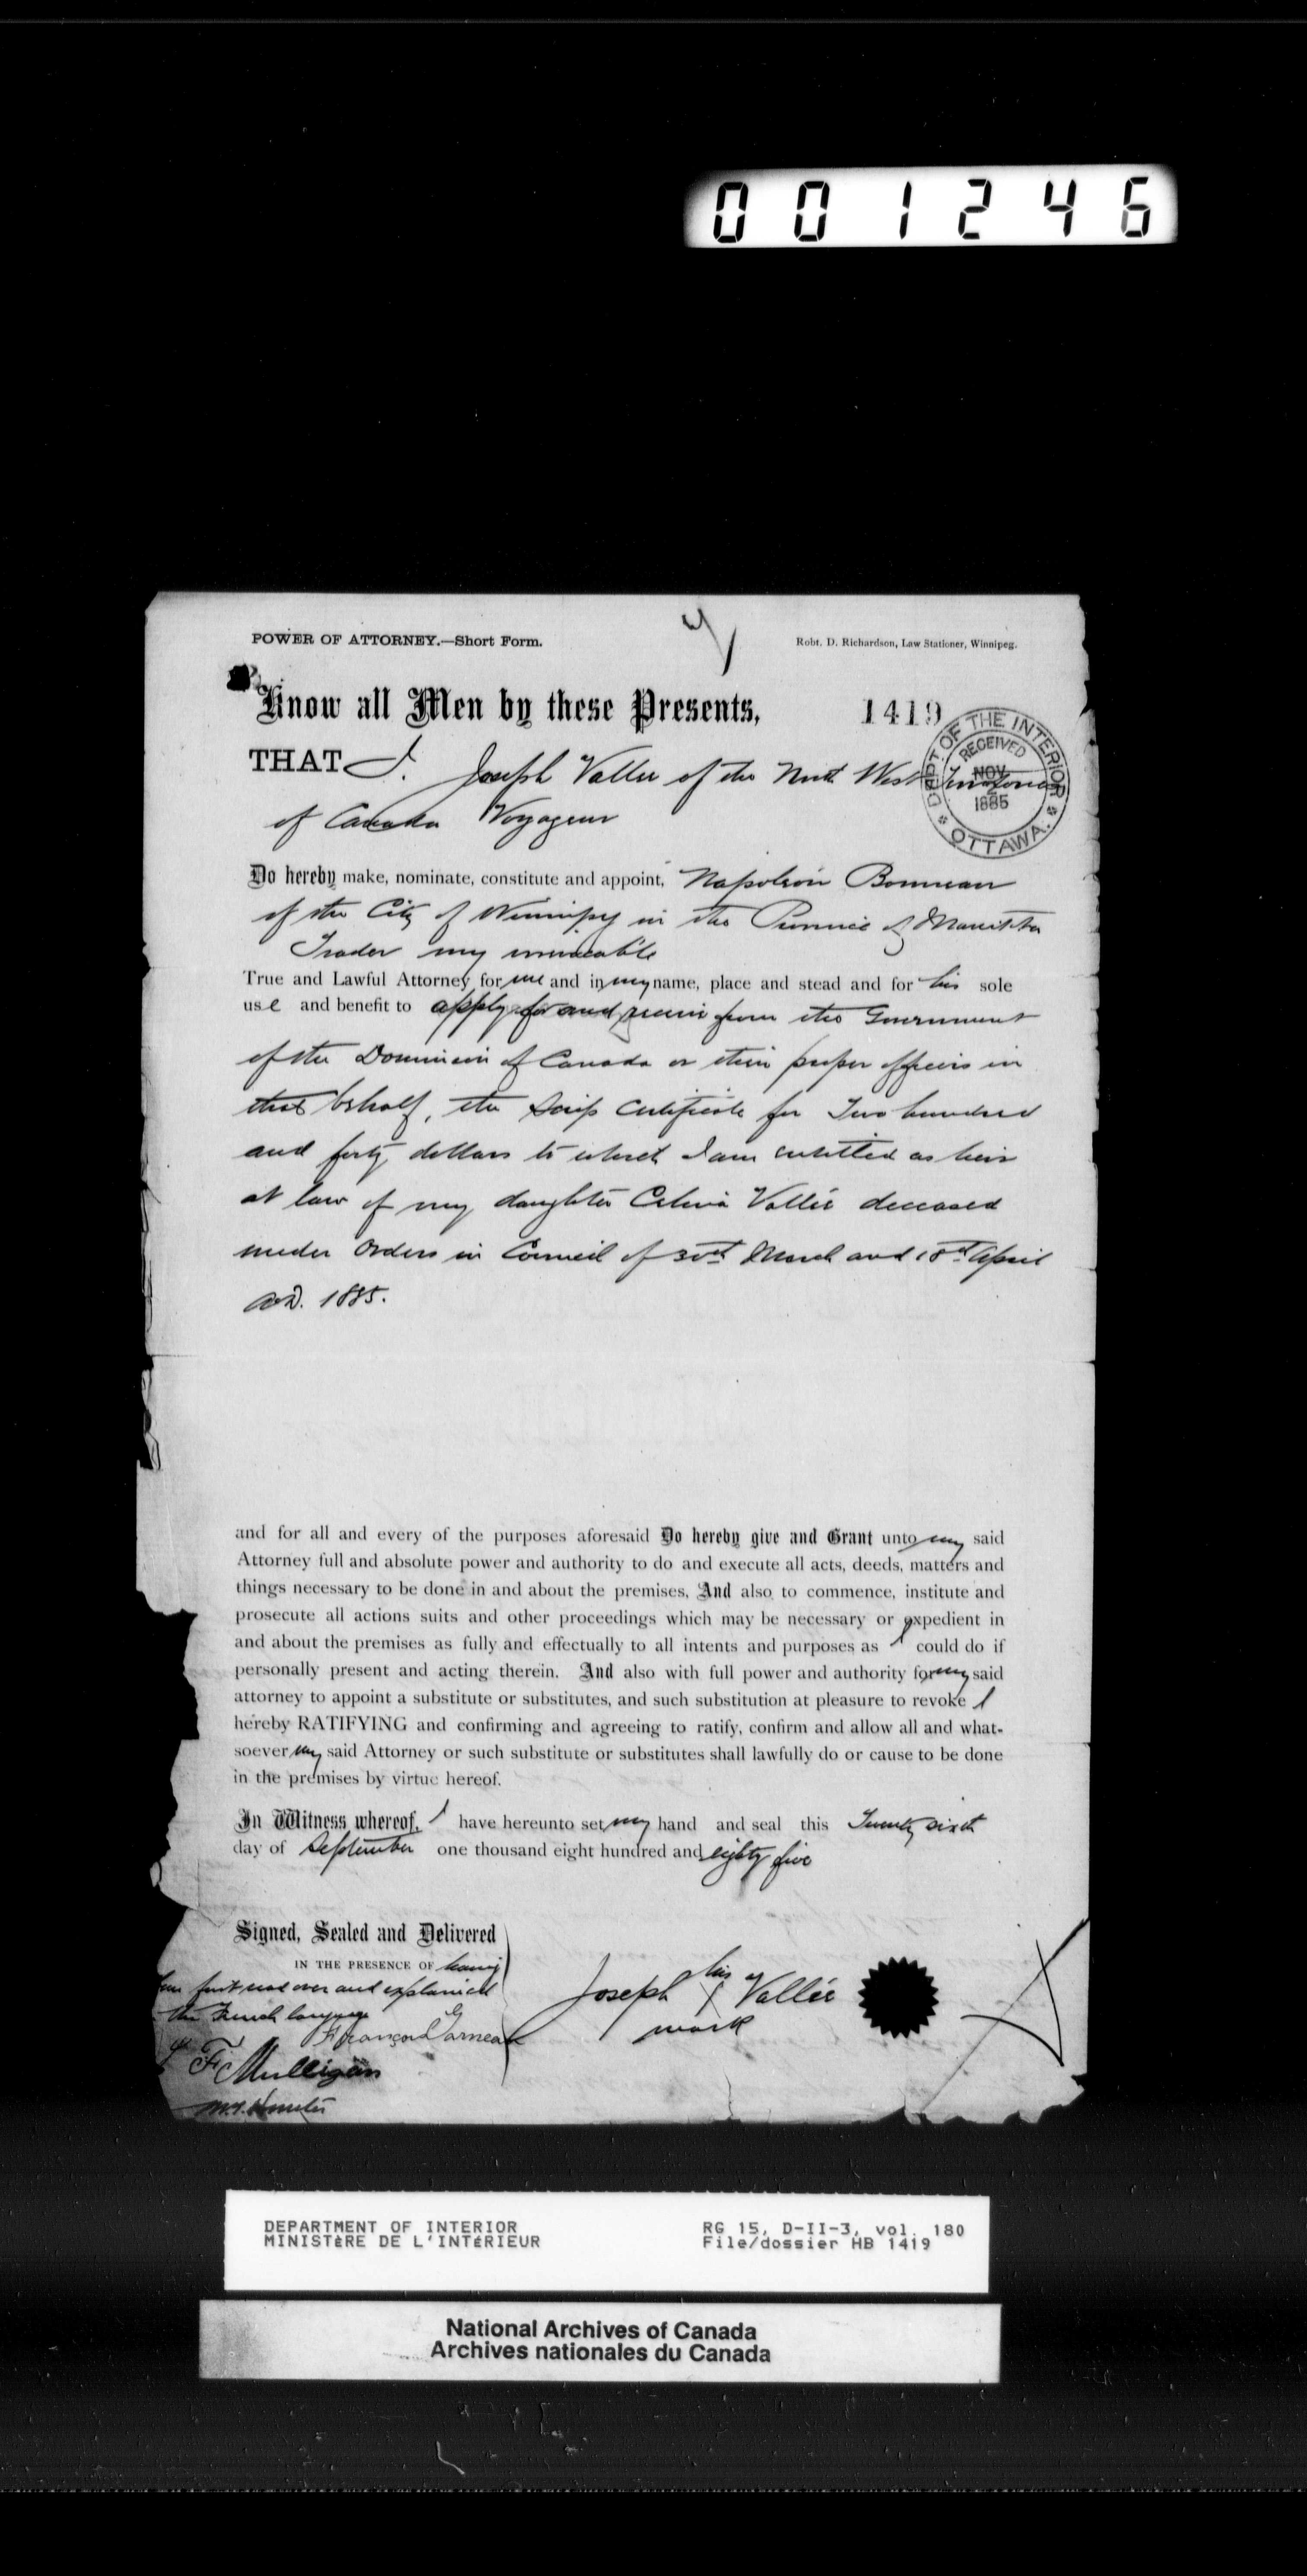 001246
POWER OF ATTORNEY.—Short Form.
Robt. D. Richardson, Law Stationer, Winnipeg.
Know all Men by these Presents,
1419
DEPT OF THE INTERIOR
RECEIVED
NOV
2
1885
OTTAWA.
THAT I. Joseph Vallee of the North West Territories
of Canada Voyageur
Do hereby make, nominate, constitute and appoint, Napoleon Bonneau
of the City of Winnipeg in the Province of Manitoba
Trader my irrevocable
True and Lawful Attorney for me and in my name, place and stead and for his sole
use and benefit to apply for and receive from the Government
of the Dominion of Canada or their proper officers in
that behalf, the Scrip Certificate for Two hundred
and forty dollars to which I am entitled as heir
at law of my daughter Celina Vallée deceased
under Orders in Council of 30th March and 18th April
A.D. 1885.
and for all and every of the purposes aforesaid Do hereby give and Grant unto my said
Attorney full and absolute power and authority to do and execute all acts, deeds, matters and
things necessary to be done in and about the premises, And also to commence, institute and
prosecute all actions suits and other proceedings which may be necessary or expedient in
and about the premises as fully and effectually to all intents and purposes as I could do if
personally present and acting therein. And also with full power and authority for my said
attorney to appoint a substitute or substitutes, and such substitution at pleasure to revoke I
hereby RATIFYING and confirming and agreeing to ratify, confirm and allow all and what-
soever my said Attorney or such substitute or substitutes shall lawfully do or cause to be done
in the premises by virtue hereof.
In Witness whereof, I have hereunto set my hand and seal this Twenty sixth
day of September one thousand eight hundred and eighty five
Signed, Sealed and Delivered
IN THE PRESENCE OF having
been first read over and explained
the French language
François Garneau
F Mulligan
Joseph his X Vallée
mark
DEPARTMENT OF INTERIOR
MINISTÈRE DE L'INTÉRIEUR
RG 15, D-II-3, vol. 180
File/dossier HB 1419
National Archives of Canada
Archives nationales du Canada